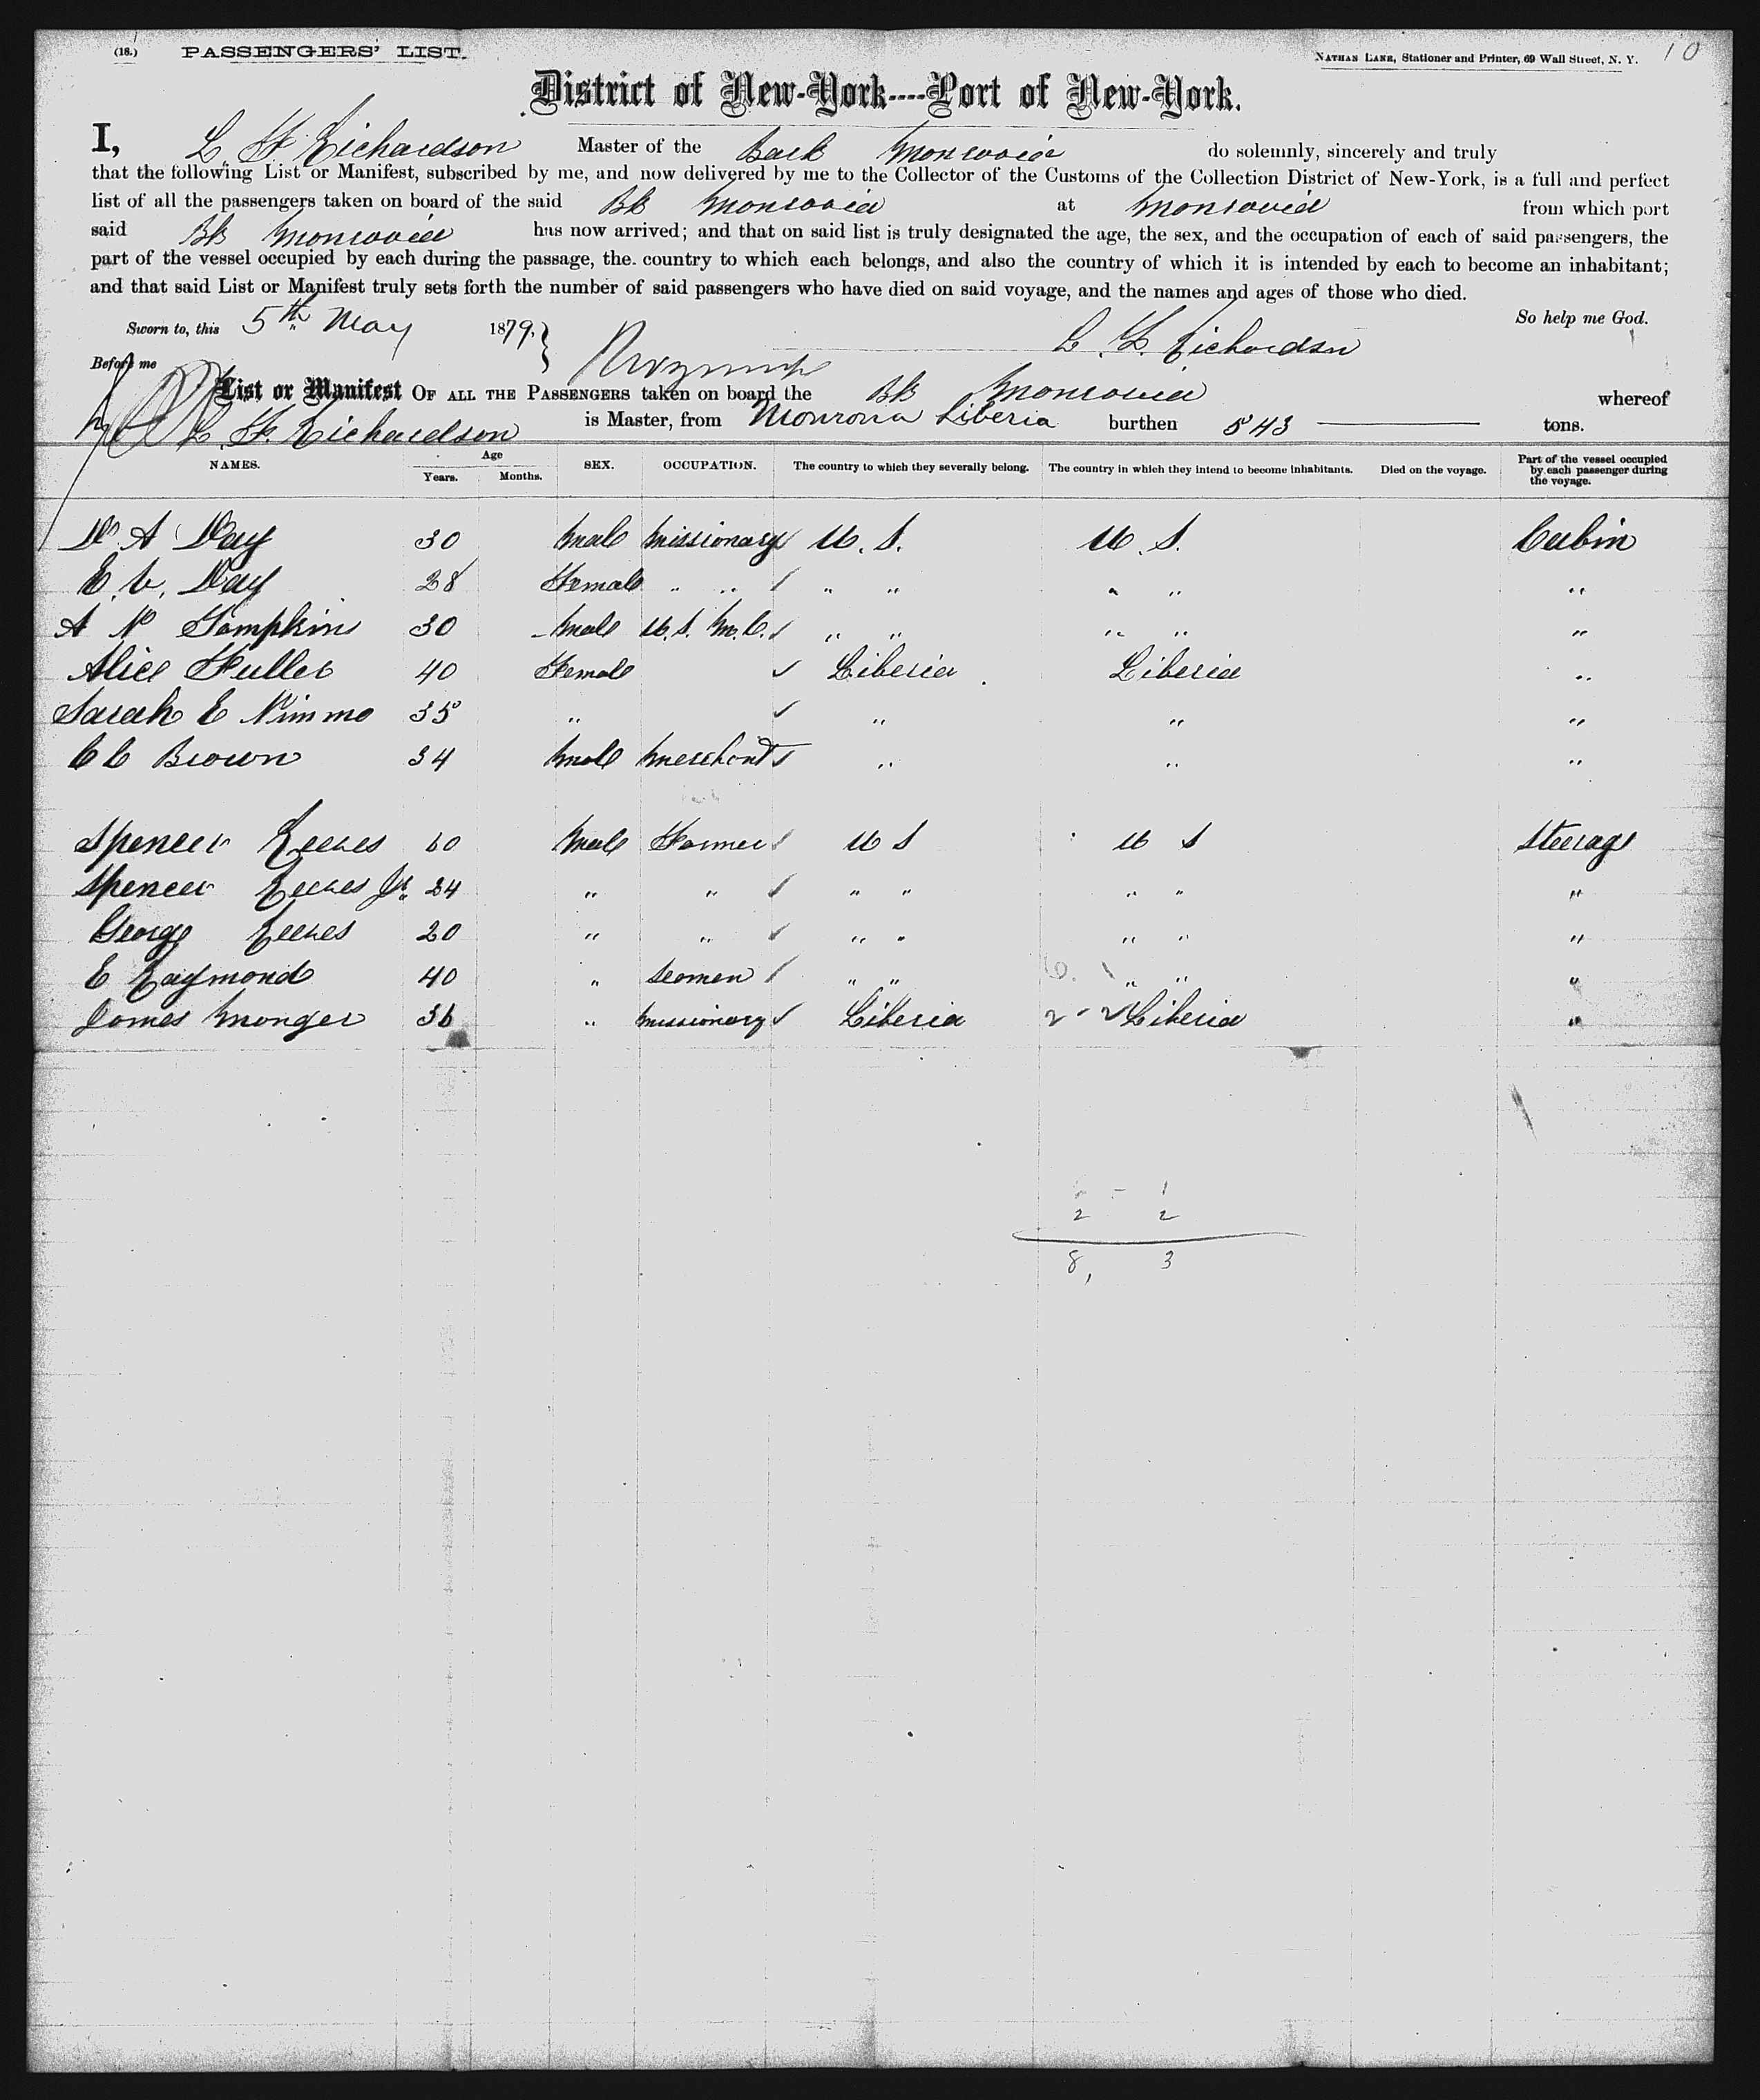 (18.) PASSENGERS' LIST. NATHAN LANE, Stationer and Printer, 69 Wall Street, N. Y. 10
District of New-York----Port of New-York.
I, L. F. Richardson Master of the Bark Monrovia do solemnly, sincerely and truly
that the following List or Manifest, subscribed by me, and now delivered by me to the Collector of the Customs of the Collection District of New-York, is a full and perfect
list of all the passengers taken on board of the said Bk Monrovia at Monrovia from which port
said Bk Monrovia has now arrived; and that on said list is truly designated the age, the sex, and the occupation of each of said passengers, the
part of the vessel occupied by each during the passage, the country to which each belongs, and also the country of which it is intended by each to become an inhabitant;
and that said List or Manifest truly sets forth the number of said passengers who have died on said voyage, and the names and ages of those who died.
So help me God.
Sworn to, this 5th May 1879. L. F. Richardson
Before me
List or Manifest OF ALL THE PASSENGERS taken on board the Bk Monrovia whereof
L. F. Richardson is Master, from Monrovia Liberia burthen 543 tons.
NAMES. Age Years. Months. SEX. OCCUPATION. The country to which they severally belong. The country in which they intend to become inhabitants. Died on the voyage. Part of the vessel occupied by each passenger during the voyage.
D. A Day 30 Male Missionary U. S. U. S. Cabin
E. V. Day 28 Female " " " " " " "
A N Tompkins 30 Male U. S. M. C. " " " " "
Alice Fuller 40 Female Liberia Liberia "
Sarah E Nimmo 35 " " " "
C C Brown 34 Male Merchant " " "
Spencer Reeves 60 Male Farmer U S U S Steerage
Spencer Reeves Jr. 24 " " " " " " "
George Reeves 20 " " " " " " "
E Raymond 40 " Seamen " " " " "
James Monger 36 " Missionary Liberia 2 - 2 Liberia "
- 1
2 2
8, 3